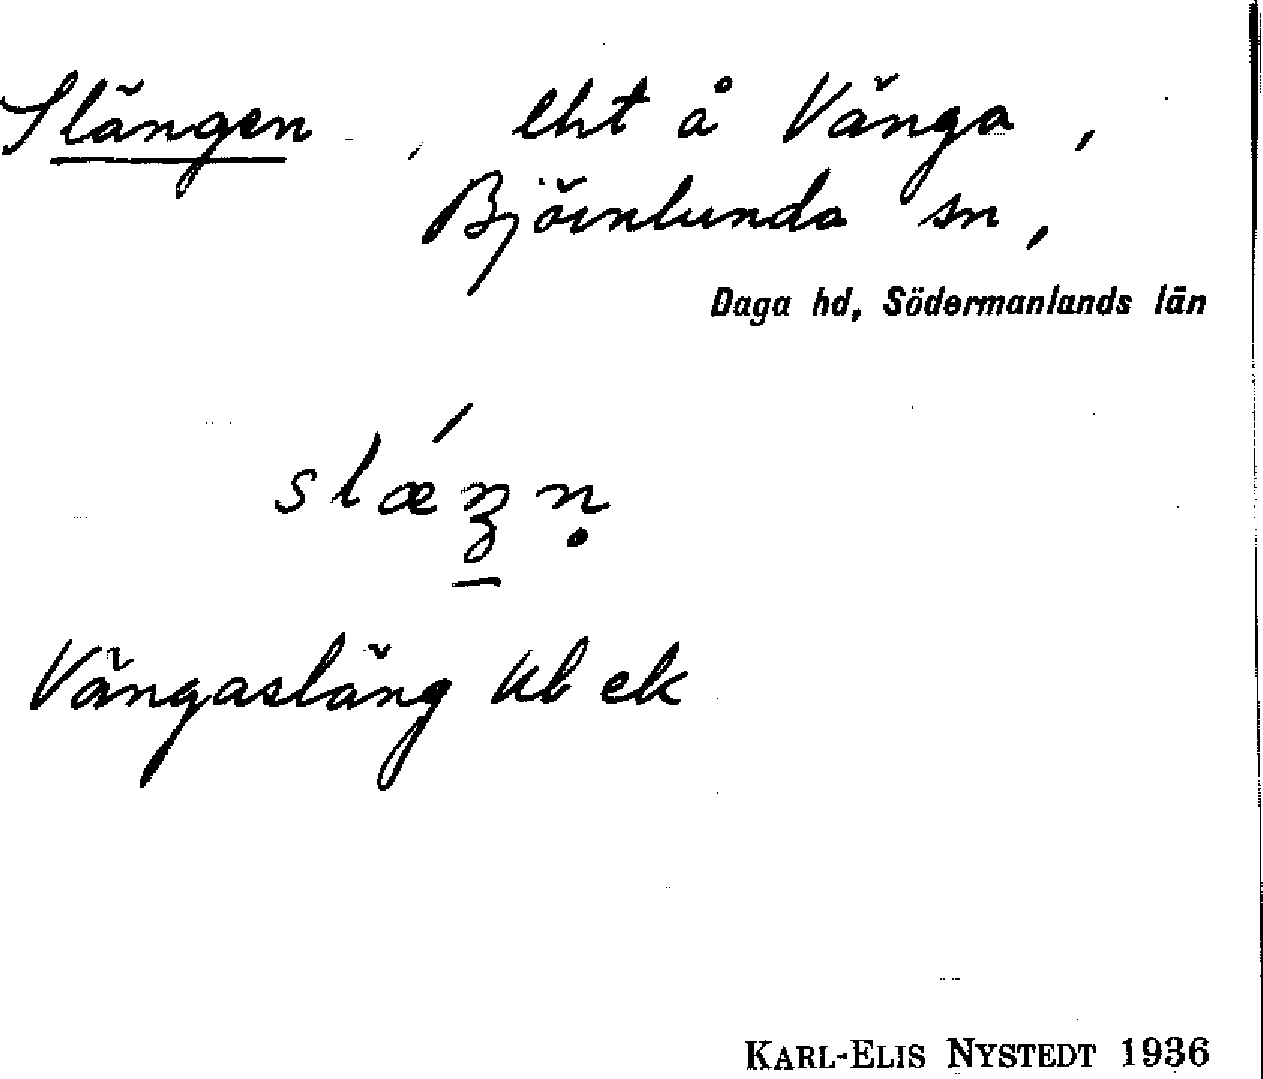 Slängen, lht å Vänga,
Björnlunda sn,
Daga hd, Södermanlands län
slǽŋ̠ṇ
Vängasläng kb ek
KARL-ELIS NYSTEDT 1936